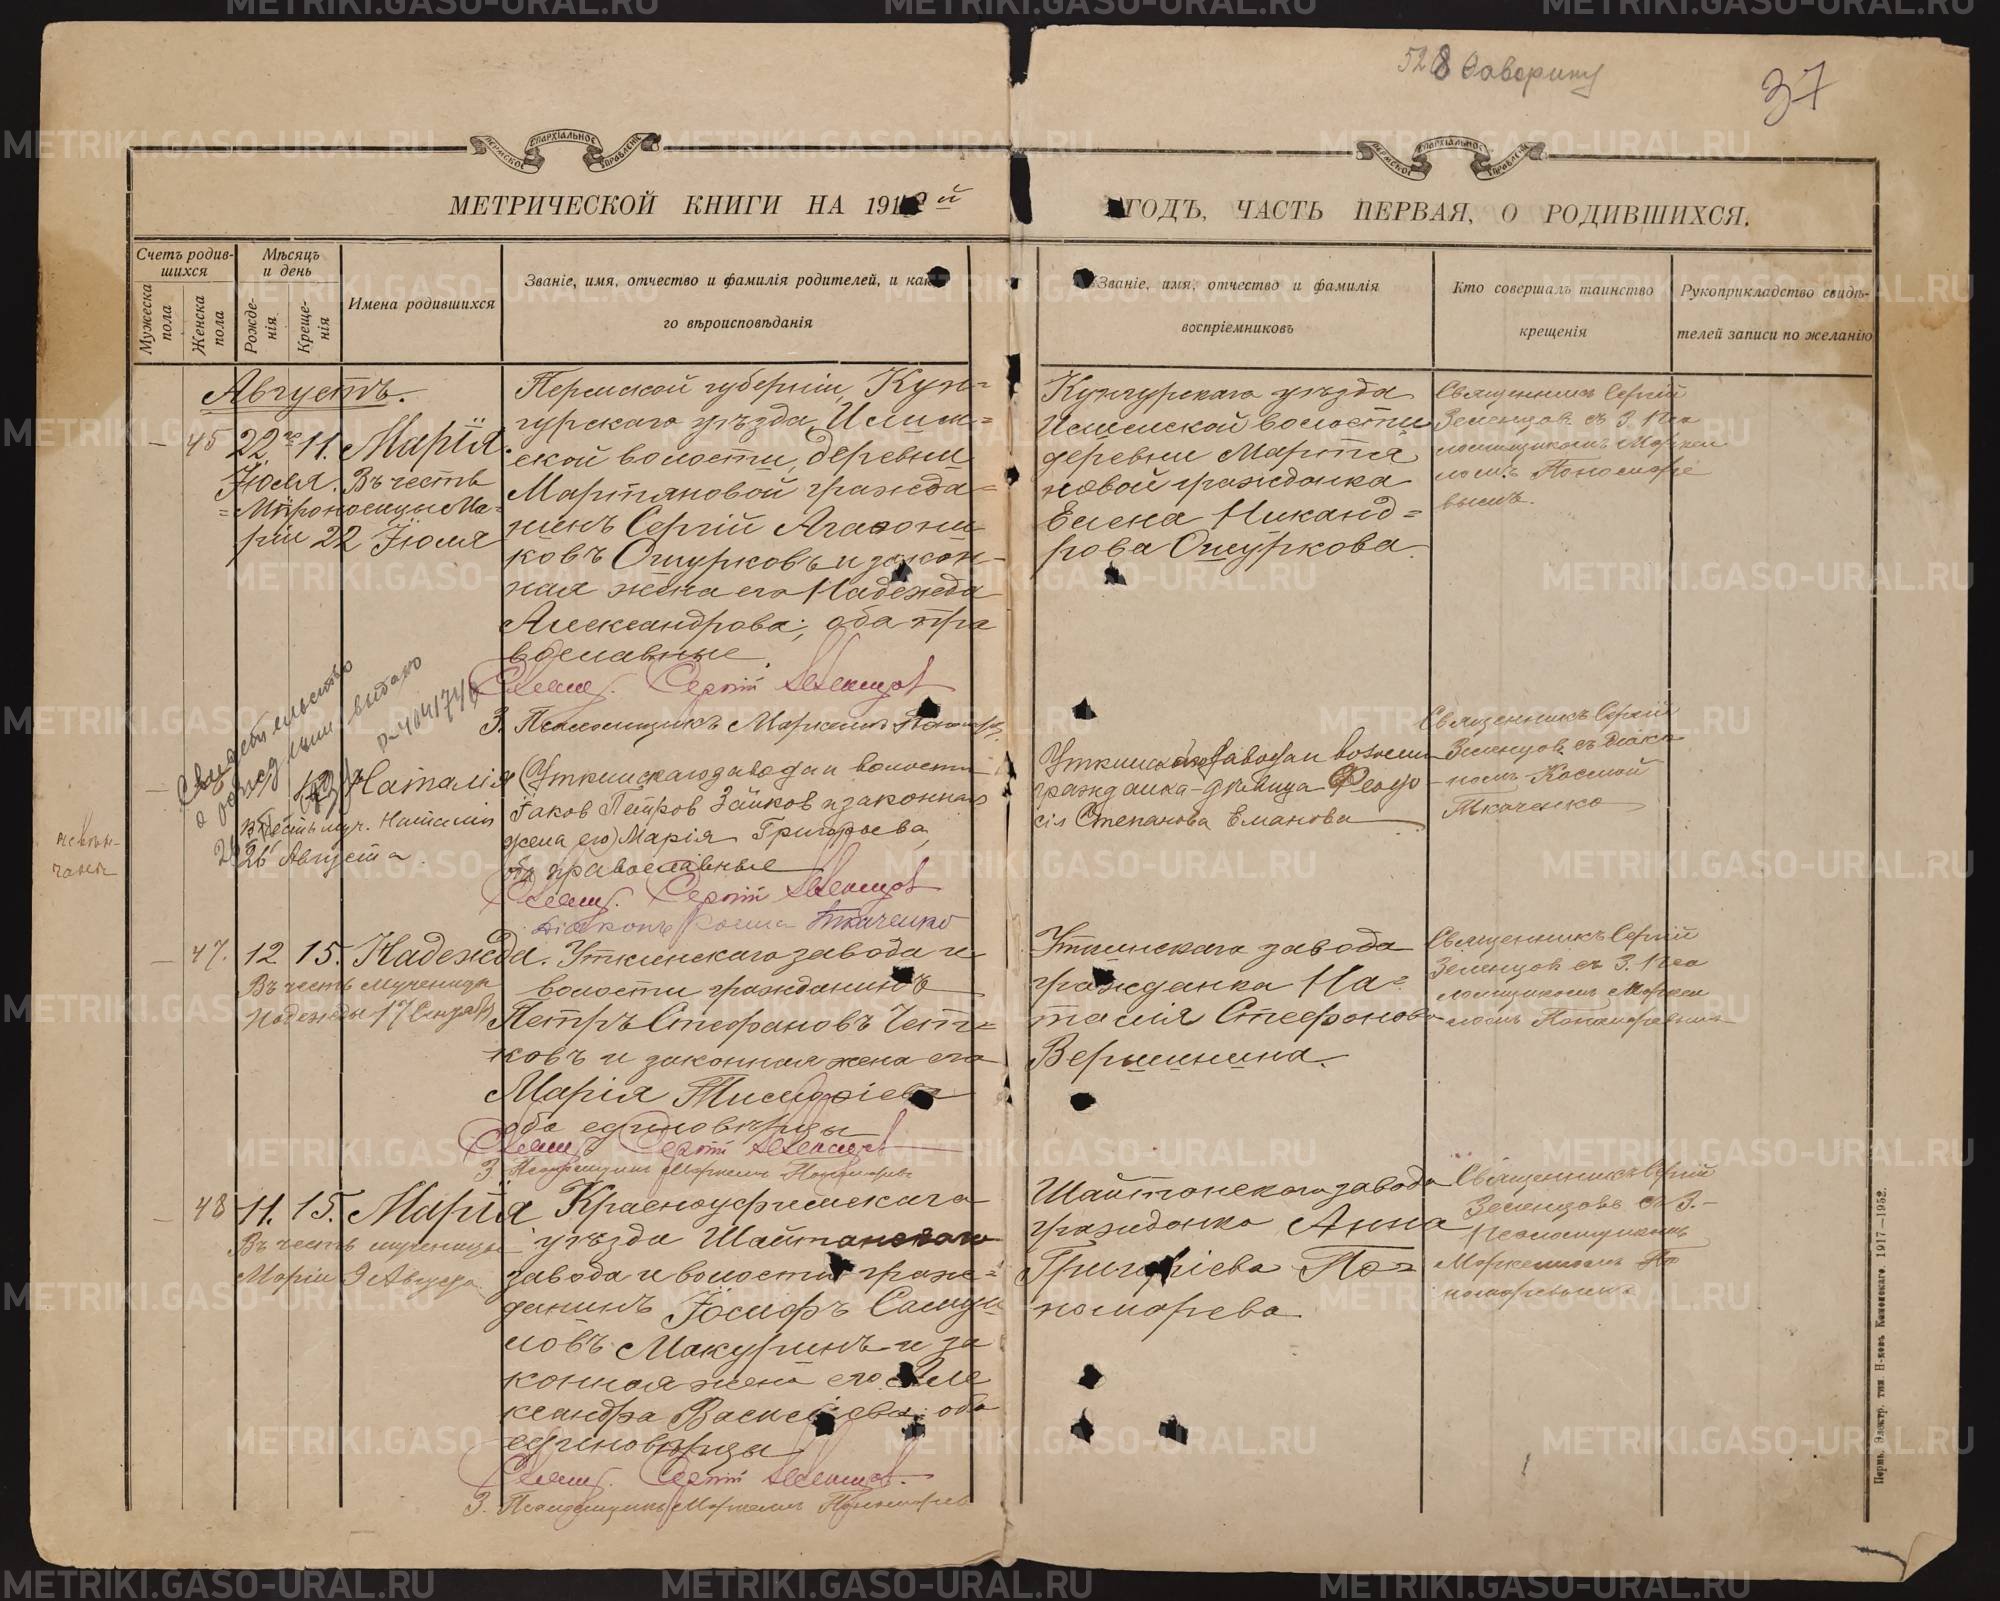 528
37
ПЕРМСКОЕ ЕПАРХІАЛЬНОЕ УПРАВЛЕНІЕ
ПЕРМСКОЕ ЕПАРХІАЛЬНОЕ УПРАВЛЕНІЕ
МЕТРИЧЕСКОЙ КНИГИ НА 191 й
ГОДЪ, ЧАСТЬ ПЕРВАЯ, О РОДИВШИХСЯ.
Счетъ родив-
шихся
Мужеска пола
Женска пола
Мѣсяцъ
и день
Рожде-
нія
Креще-
нія
Имена родившихся
Званіе, имя, отчество и фамилія родителей, и како
го вѣроисповѣданія
Званіе, имя, отчество и фамилія
воспріемниковъ
Кто совершалъ таинство
крещенія
Рукоприкладство свидѣ-
телей записи по желанію
Августъ.
45 22го 11. Марія.
Юля. Въ честь
Мѵроносицы Ма-
ріи 22 Іюля
Пермской губерніи, Кун=
гурскаго уѣзда, Илим=
ской волости, деревни
Мартяновой гражда=
нинъ Сергій Агафони
ковъ Ошурковъ и закон-
ная жена его Надежда
Александрова; оба пра
вославные.
Свящ. Сергій Зеленцов
З. Псаломщикъ Маркелъ Пономарев
Кунгурскаго уѣзда
Илимской волости
деревни Мартя
новой гражданка
Елена Никанд=
рова Ошуркова.
Священникъ Сергій
Зеленцов съ З. Пса
ломщикомъ Марке
ломъ Пономаре
вымъ.
Свидетельство
о рождении выдано
Наталія
Въ честь муч. Наталіи
26 Августа.
Уткинскаго завода и волости
Іаков Петров Зайков и законная
жена его Марія Григорьева,
оба православные
Свящ. Сергій Зеленцов
Діаконъ Косма Ткаченко
Уткинскаго завода и волости
гражданка-дѣвица Феодо
сія Степанова Еманова
Священникъ Сергій
Зеленцов съ діако
номъ Космой
Ткаченко
47. 12 15. Надежда.
Въ честь мученицы
Надежды 17 Сентяб
Уткинскаго завода и
волости гражданинъ
Петръ Стефановъ Чет=
ковъ и законная жена его
Марія Тимофіева
оба единовѣрцы
Свящ. Сергій Зеленцов
З. Псаломщикъ Маркелъ Пономарев
Уткинскаго завода
гражданка На=
талія Стефанова
Вершинина.
Священникъ Сергій
Зеленцов съ З. Пса
ломщикомъ Марке
ломъ Пономаревымъ
48 11. 15. Марія
Въ честь мученицы
Маріи 9 Августа
Красноуфимскаго
уѣзда Шайтанскаго
завода и волости граж=
данинъ Іосифъ Самуи
ловъ Макуринъ и за
конная жена его Але
ксандра Васильева оба
единовѣрцы
Свящ. Сергій Зеленцов.
З. Псаломщикъ Маркелъ Пономарев
Шайтанскаго завода
гражданка Анна
Григоріева По=
номарева.
Священникъ Сергій
Зеленцовъ съ З.
Псаломщикомъ
Маркеломъ По
номаревымъ
Пермь. Электр. тип Н-ковъ Каменскаго. 1917—1952.
METRIKI.GASO-URAL.RU